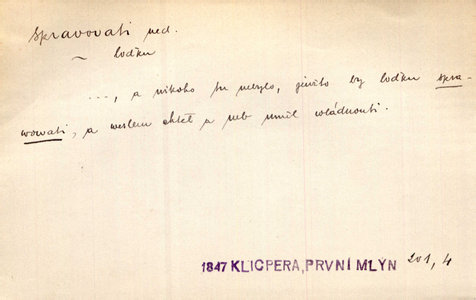 Spravovati ned.
~ loďku
..., a nikoho tu nebylo, jenžto by loďku spra-
wowati, a weslem chtěl a neb uměl wládnouti.
1847 KLICPERA, PRVNÍ MLÝN 201, 4